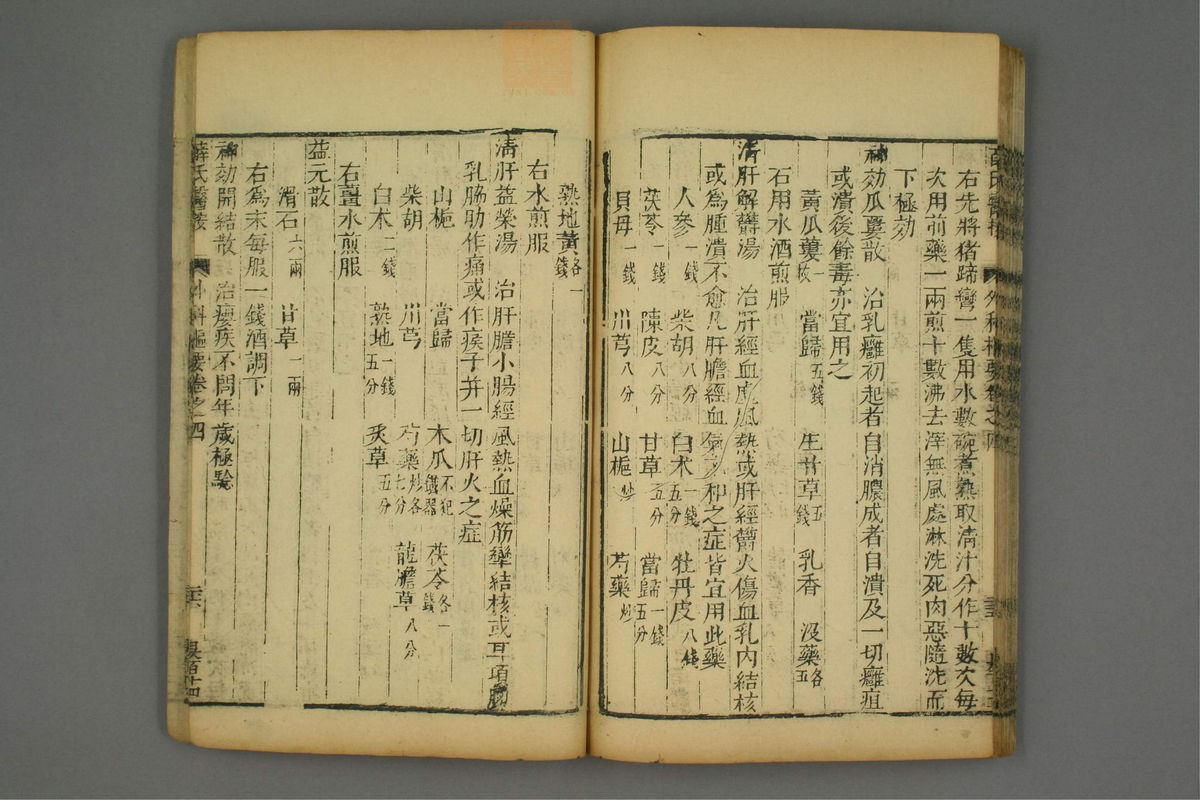 右先將猪蹄彎一隻用水數碗煮熟取清汁分作十數次每
次用前藥一兩煎十數沸去滓無風處淋洗死肉惡隨洗而
下極効
神効瓜蔞散 治乳癰初起者自消膿成者自潰及一切癰疽
或潰後餘毒亦宜用之
黃瓜蔞一枚 當歸五錢 生甘草五錢 乳香 沒藥各五
石用水酒煎服
清肝解欝湯 治肝經血虛風熱或肝經欝火傷血乳內結核
或為腫潰不愈凡肝膽經血氣不和之症皆宜用此藥
人參一錢 柴胡八分 白朮一錢五分 牡丹皮八錢
茯苓一錢 陳皮八分 甘草五分 當歸一錢五分
貝母一錢 川芎八分 山梔炒 芍藥炒
熟地黃各一錢
右水煎服
清肝益榮湯 治肝膽小腸經風熱血燥筋攣結核或耳項胸
乳脇肋作痛或作瘊子并一切肝火之症
山梔 當歸 木瓜不犯鐵器 茯苓各一錢
柴胡 川芎 芍藥炒各七分 龍膽草八分
白朮二錢 熟地一錢五分 炙草五分
右薑水煎服
益元散
滑石六兩 甘草一兩
右為末每服一錢酒調下
神効開結散 治癭疾不問年歲極驗
薛氏醫按 外科樞要卷之四